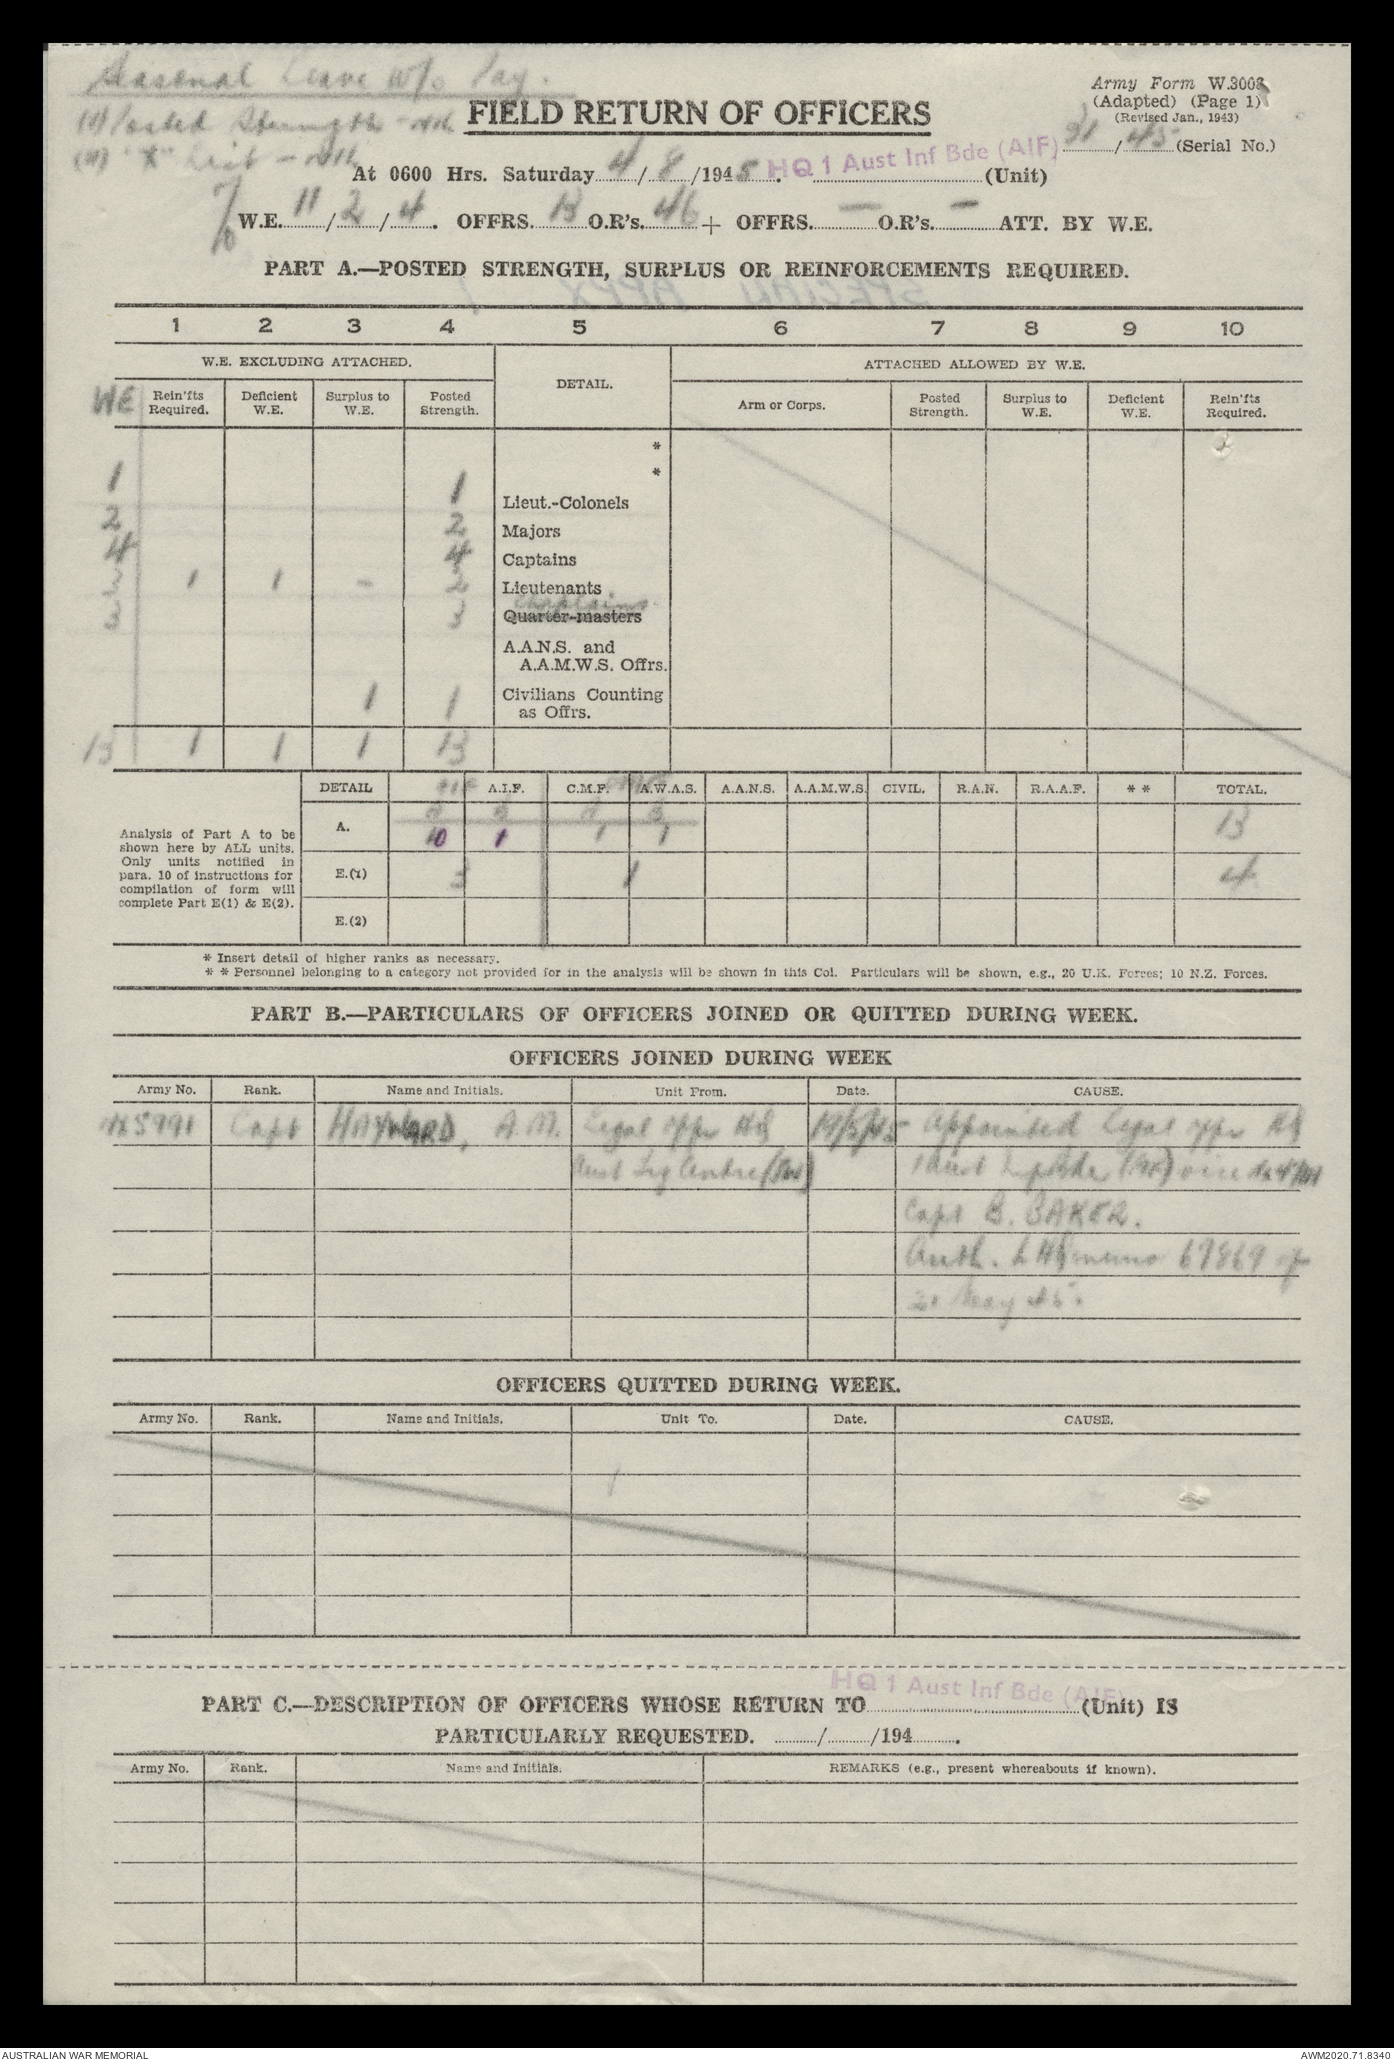 Seasonal Leave w/o Pay.
Army Form W.3008
(Adapted) (Page 1)
(Revised Jan., 1943)
FIELD RETURN OF OFFICERS
(i) Posted Strength - nil
(ii) "X" List - nil
31/45 (Serial No.)
At 0600 Hrs. Saturday 4/8/1945. HQ 1 Aust Inf Bde (AIF) (Unit)
W.E. 11/2/4. OFFRS. 13 O.R's. 46 + OFFRS. — O.R's. — ATT. BY W.E.
PART A.—POSTED STRENGTH, SURPLUS OR REINFORCEMENTS REQUIRED.
SPECIAL APPX
1 2 3 4 5 6 7 8 9 10
W.E. EXCLUDING ATTACHED. DETAIL. ATTACHED ALLOWED BY W.E.
WE Rein'fts Required. Deficient W.E. Surplus to W.E. Posted Strength. Arm or Corps. Posted Strength. Surplus to W.E. Deficient W.E. Rein'fts Required.
*
*
1 1 Lieut.-Colonels
2 2 Majors
4 4 Captains
3 1 1 - 2 Lieutenants
Chaplains
3 3 Quarter-masters
A.A.N.S. and
A.A.M.W.S. Offrs.
1 1 Civilians Counting
as Offrs.
13 1 1 1 13
DETAIL AIF A.I.F. C.M.F. A.W.A.S. A.A.N.S. A.A.M.W.S. CIVIL. R.A.N. R.A.A.F. * * TOTAL.
A. 13
10 1 1 1
E.(1) 3 1 4
E.(2)
Analysis of Part A to be
shown here by ALL units.
Only units notified in
para. 10 of instructions for
compilation of form will
complete Part E(1) & E(2).
* Insert detail of higher ranks as necessary.
* * Personnel belonging to a category not provided for in the analysis will be shown in this Col. Particulars will be shown, e.g., 20 U.K. Forces; 10 N.Z. Forces.
PART B.—PARTICULARS OF OFFICERS JOINED OR QUITTED DURING WEEK.
OFFICERS JOINED DURING WEEK
Army No. Rank. Name and Initials. Unit From. Date. CAUSE.
Capt HAYWARD, A.M. Legal offr HQ Appointed Legal offr HQ
1 Aust Inf Bde (AIF) vice
Capt B. BAKER.
Auth. LHQ memo 67869 of
May 45.
OFFICERS QUITTED DURING WEEK.
Army No. Rank. Name and Initials. Unit To. Date. CAUSE.
HQ 1 Aust Inf Bde (AIF)
PART C.—DESCRIPTION OF OFFICERS WHOSE RETURN TO (Unit) IS
PARTICULARLY REQUESTED. / /194 .
Army No. Rank. Name and Initials. REMARKS (e.g., present whereabouts if known).
AUSTRALIAN WAR MEMORIAL AWM2020.71.8340